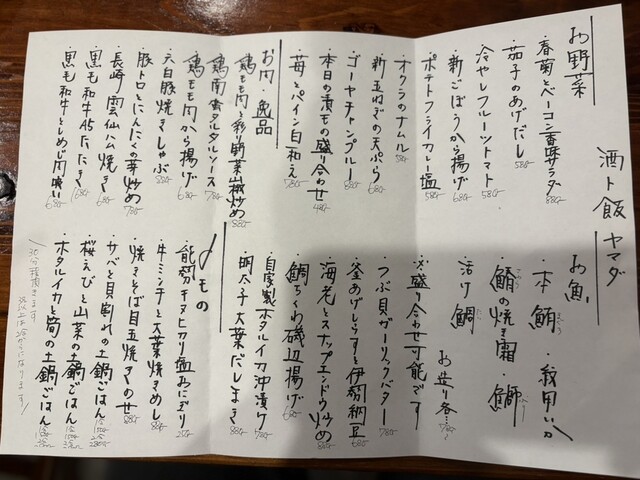 酒ト飯 ヤマダ
お野菜
・春菊とベーコン香味サラダ 880-
・茄子のあげだし 580-
・冷やしフルーツトマト 580-
・新ごぼうから揚げ 680-
・ポテトフライカレー塩 580-
・オクラのナムル 580-
・新玉ねぎの天ぷら 680-
・ゴーヤチャンプルー 880-
・本日の漬もの盛り合わせ 480-
・苺とパイン白和え 780-
お肉・逸品
・鶏もも肉と彩り野菜山椒炒め 880-
・鶏南蛮タルタルソース 780-
・鶏もも肉から揚げ 680-
・天白豚焼きしゃぶ 880-
・豚トロとにんにくの芽炒め 780-
・長崎雲仙ハム焼き 680-
・黒毛和牛A5たたき 1680-
・黒毛和牛としめじ肉吸い 680-
お魚
・本鮪 ・紋甲いか
・鰆の焼き霜 ・鰤
・活け鯛
お造り各 780-
※盛り合わせ可能です
・つぶ貝ガーリックバター 780-
・釜あげしらすと伊勢納豆 680-
・海老とスナップエンドウ炒め 880-
・鯛ちくわ磯辺揚げ 680-
・自家製ホタルイカ沖漬け 780-
・明太子大葉だしまき 880-
〆もの
・能勢キヌヒカリ塩おにぎり 250-
・牛ミンチと大葉焼きめし 880-
・焼きそば目玉焼きのせ 880-
・サバと貝割れの土鍋ごはん
・桜えびと山菜の土鍋ごはん
・ホタルイカと筍の土鍋ごはん